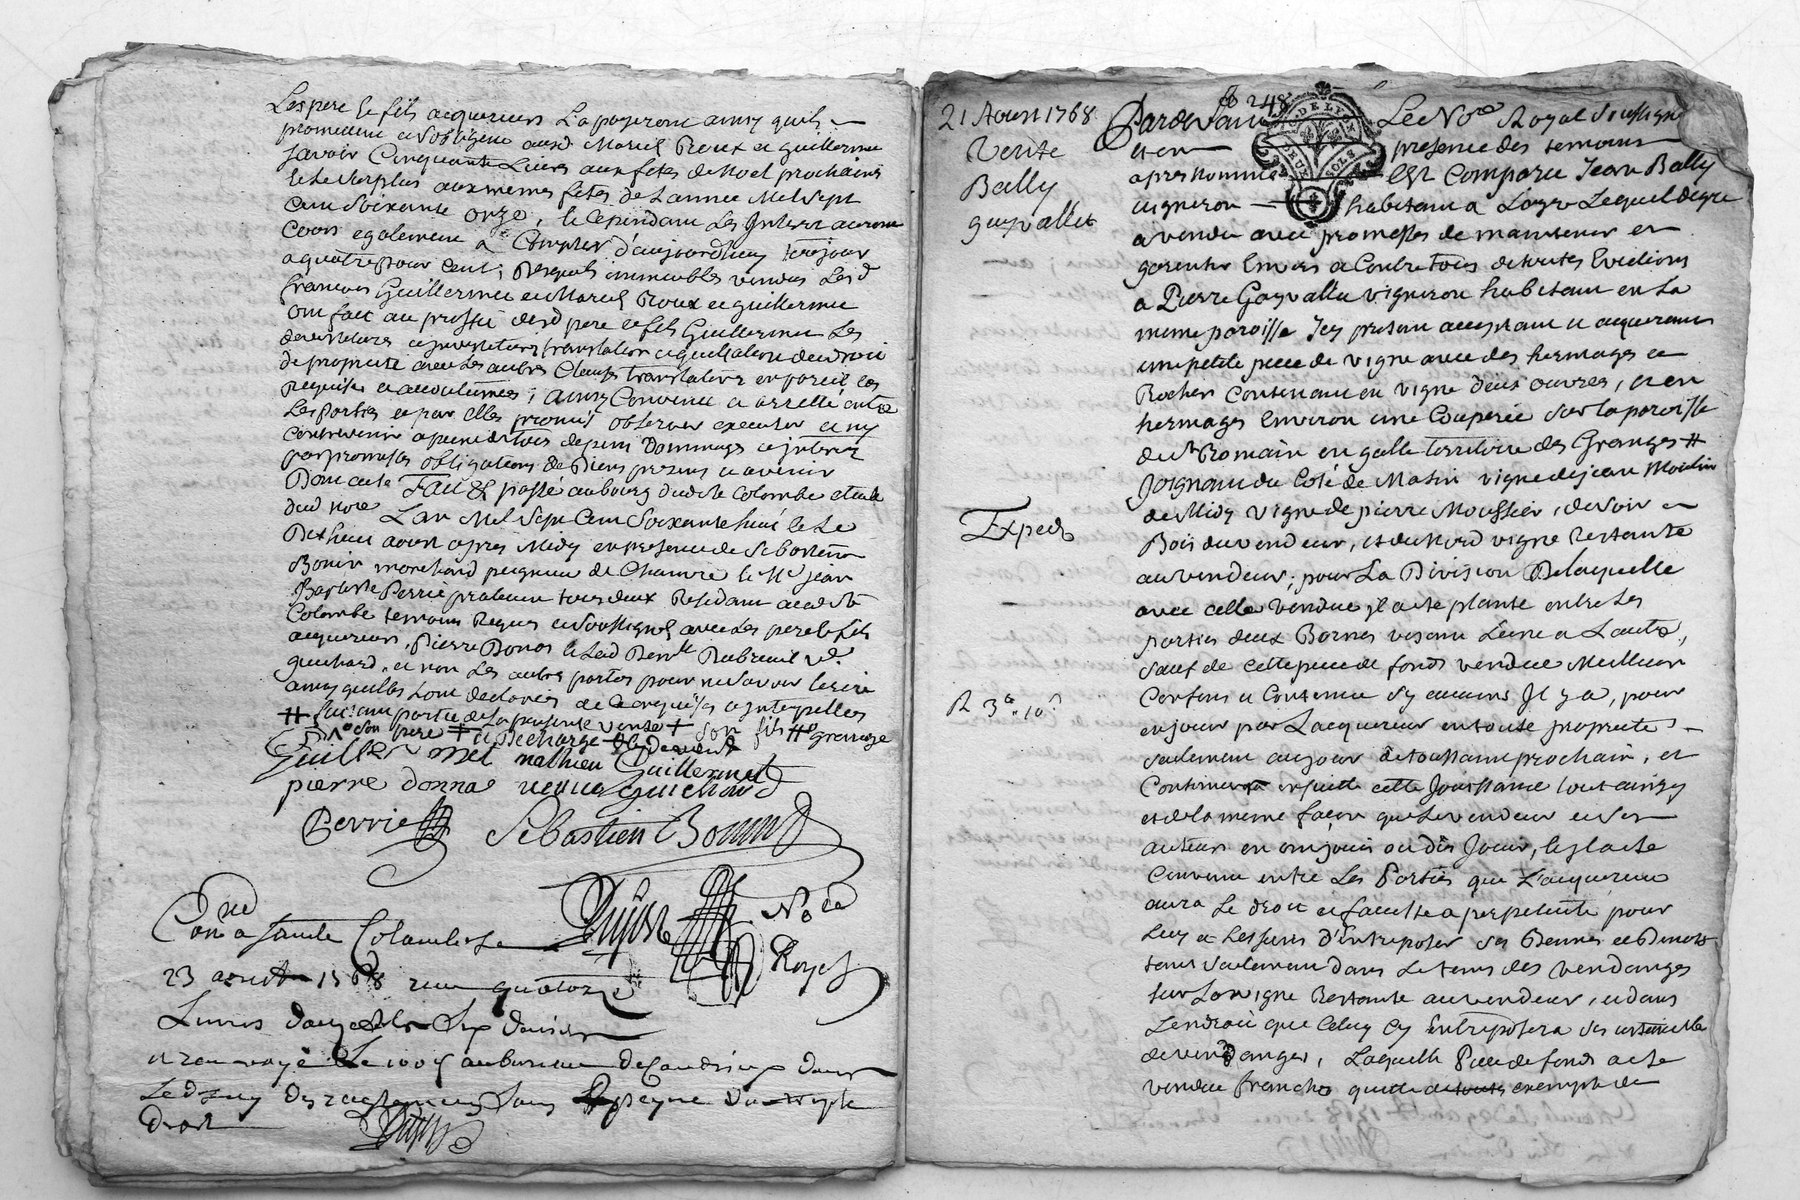 Les pere & fils acquereurs La payeront ainsy quils
promettent et sobligent aud Marcel Roux et guillermin
savoir Cinquante Livres aux fetes de Noel prochaines
& le surplus aux memes fetes de Lannee Mil sept
cent soixante onze, & Cependant Les Interets auront
cours egalement a Compter d'aujourdhuy
a quatre pour Cent; immeubles vendus Les d
francois Guillermin et Marcel Roux et guillermin
ont fait au proffit desd pere & fils Guillermin Les
devestitures investitures translation
de propriete avec Les autres Clauses translatives en pareil cas
requises et accoutumées; ainsy Convenu et arretté entre
Les Parties et par elles promis observer executer et ny
contrevenir a peine de tous depens Dommages et interets
par promesses obligations de Biens presens et avenir
Dont acte Fait & passé au bourg dud Ste Colombe etude
dud nore L'an Mil sept Cent Soixante huit & le
Dix huit aoust apres Midy en presence de Sebastien
Bonin marchand peigneur de Chanvre & Me jean
Baptiste Perrie praticien tous deux Residant aud Ste
Colombe temoins Requis et Soussignés avec Les pere & fils
acquereurs, Pierre Donas & Lad Dubreuil
guichard, et non Les autres parties pour ne Savoir Ecrire
ainsy quelles Lont declarées de ce enquises et Interpellées
# faisant partie de La presente vente + son fils # grange
son pere + et Decharge
Guillermet mathieu Guillermet
pierre donnas veuve Guichard
Perrie Sebastien Bonin
Dujon Nore
Royal
Con a Sainte Colombe Le
23 aoust 1768 receu quatorze
Livres
et renvoyé Le 100e au bureau de Condrieu dans
Le
droit
21 Aoust 1768
Vente
Bally
gayvallet
Exped
R 3# 10s
248
Pardevant Le Nore Royal Soussigné
et en presence des temoins
apres nommés Est Comparu Jean Bally
vigneron habitant a Loyre Lequel de gre
a vendu avec promesses de maintenir et
garentir Envers et Contre tous de toutes Evictions
a Pierre Gayvallet vigneron habitant en La
meme paroisse Icy present acceptant et acquereur
une petite piece de vigne avec des hermages et
Rocher Contenant en vigne deux ouvrés, et en
hermages Environ une Couperée sur La paroisse
du St Romain en galle territoire des Granges #
Joignant du Coté de Matin vigne de jean Moulin
de Midy vigne de pierre Moussier, de soir
Bois du vendeur, et du Nord vigne Restante
au vendeur; pour La Division De laquelle
avec celle vendue il a eté planté entre Les
parties deux Bornes visant L'une a L'autre,
sauf de cette piece de fonds vendue Meilleur
Confins et Contenue s'y aucuns Il y a, pour
en jouir par Lacquereur en toute propriete
seulement au jour de toussaint prochain, et
Continuera ensuite cette Jouissance tout ainsy
et de la meme façon que Le vendeur et ses
auteurs en ont joui ou du Jouir, & il a eté
Convenu entre Les Parties que L'acquereur
aura Le droit et faculté a perpetuité pour
Luy et Les siens D'Entreposer ses Bennes et Benots
tant seulement dans Le tems des vendanges
sur La vigne Restante au vendeur, et dans
L'endroit que Celuy Cy Entreposera ses ustencilles
de vendanges, Laquelle Piece de fonds a eté
vendue franche quitte exempte de